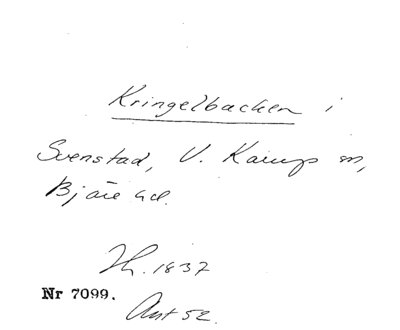 Kringelbacken i
Svenstad, V. Karup sn,
Bjäre hd.
Th. 1837
Nr 7099.
Ant 52.